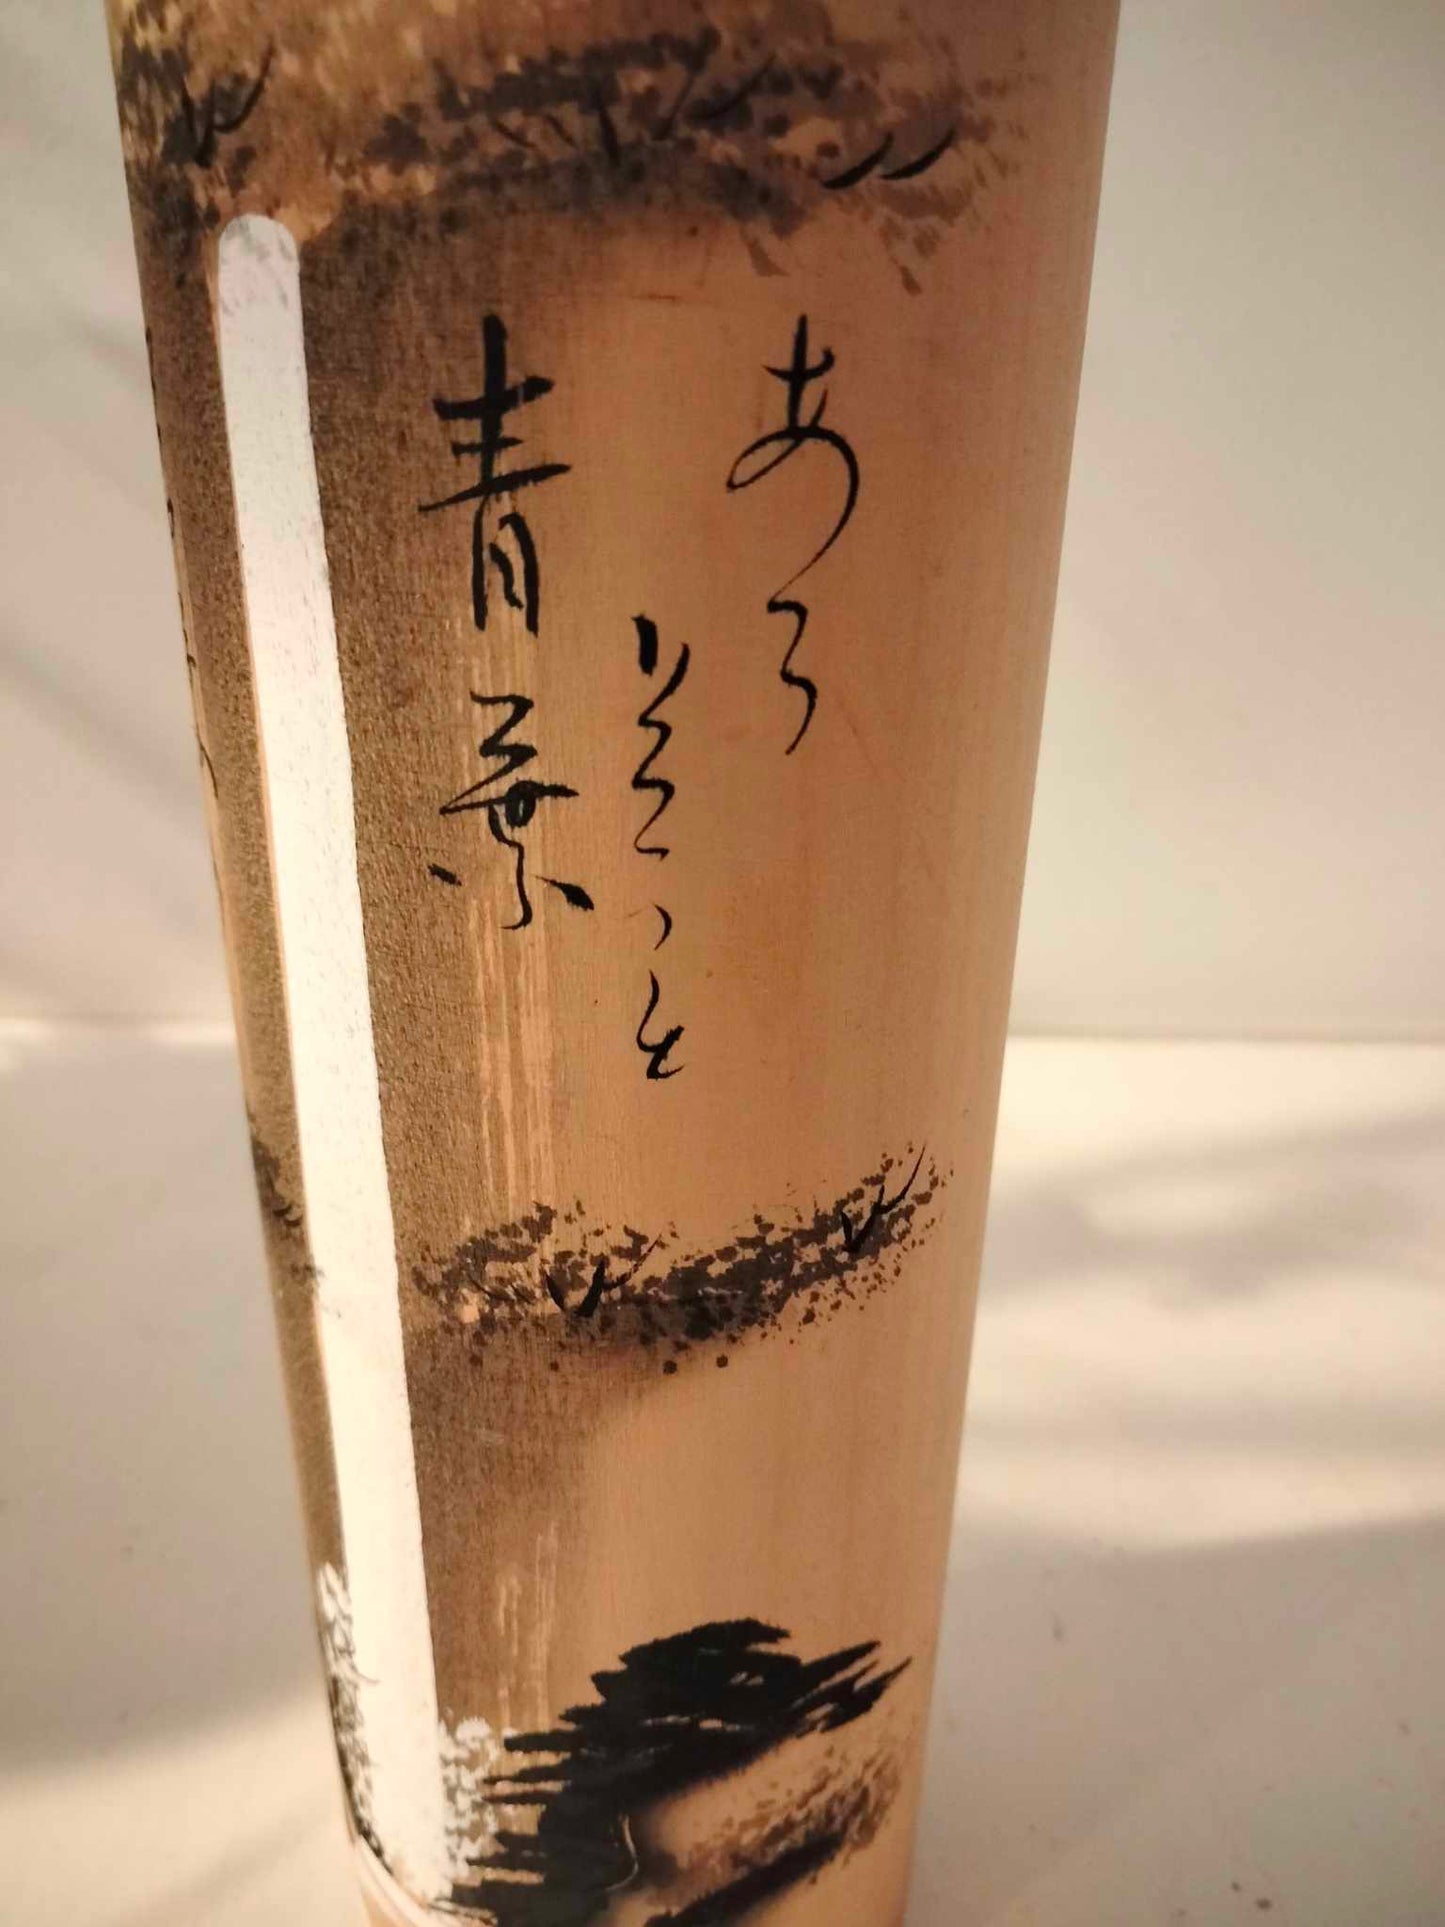 あら
たふと
青葉